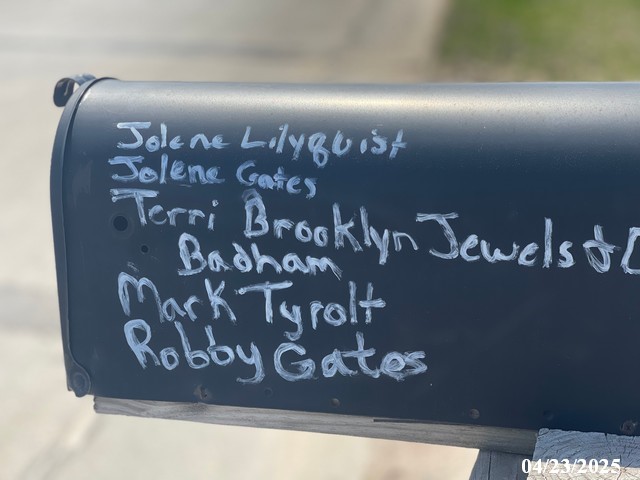 Jolene Lilyquist
Jolene Gates
Terri Brooklyn Jewels &
Badham
Mark Tyrolt
Robby Gates
04/23/2025